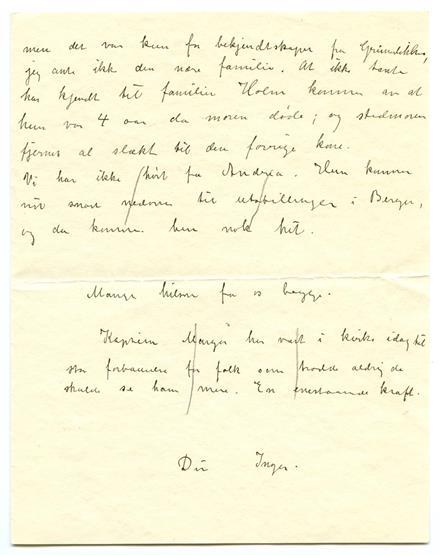 men det var kun for bekjendtskaper fra Grimelikken,
jeg ante ikke den nære familie. At ikke tante
har kjendt til familien Holm kommer av at
hun var 4 aar da moren døde; og stedmoren
fjernet al slækt til den forrige kone.
Vi har ikke hørt fra Andrea. Hun kommer
nok snart nedover til utstillingen i Bergen,
og da kommer hun nok hit.
Mange hilsen fra os begge.
Kaptein Manger har vært i kirke idag til
stor forbauselse for folk som trodde aldrig de
skulde se ham mere. En enestaaende kraft.
Din Inger.